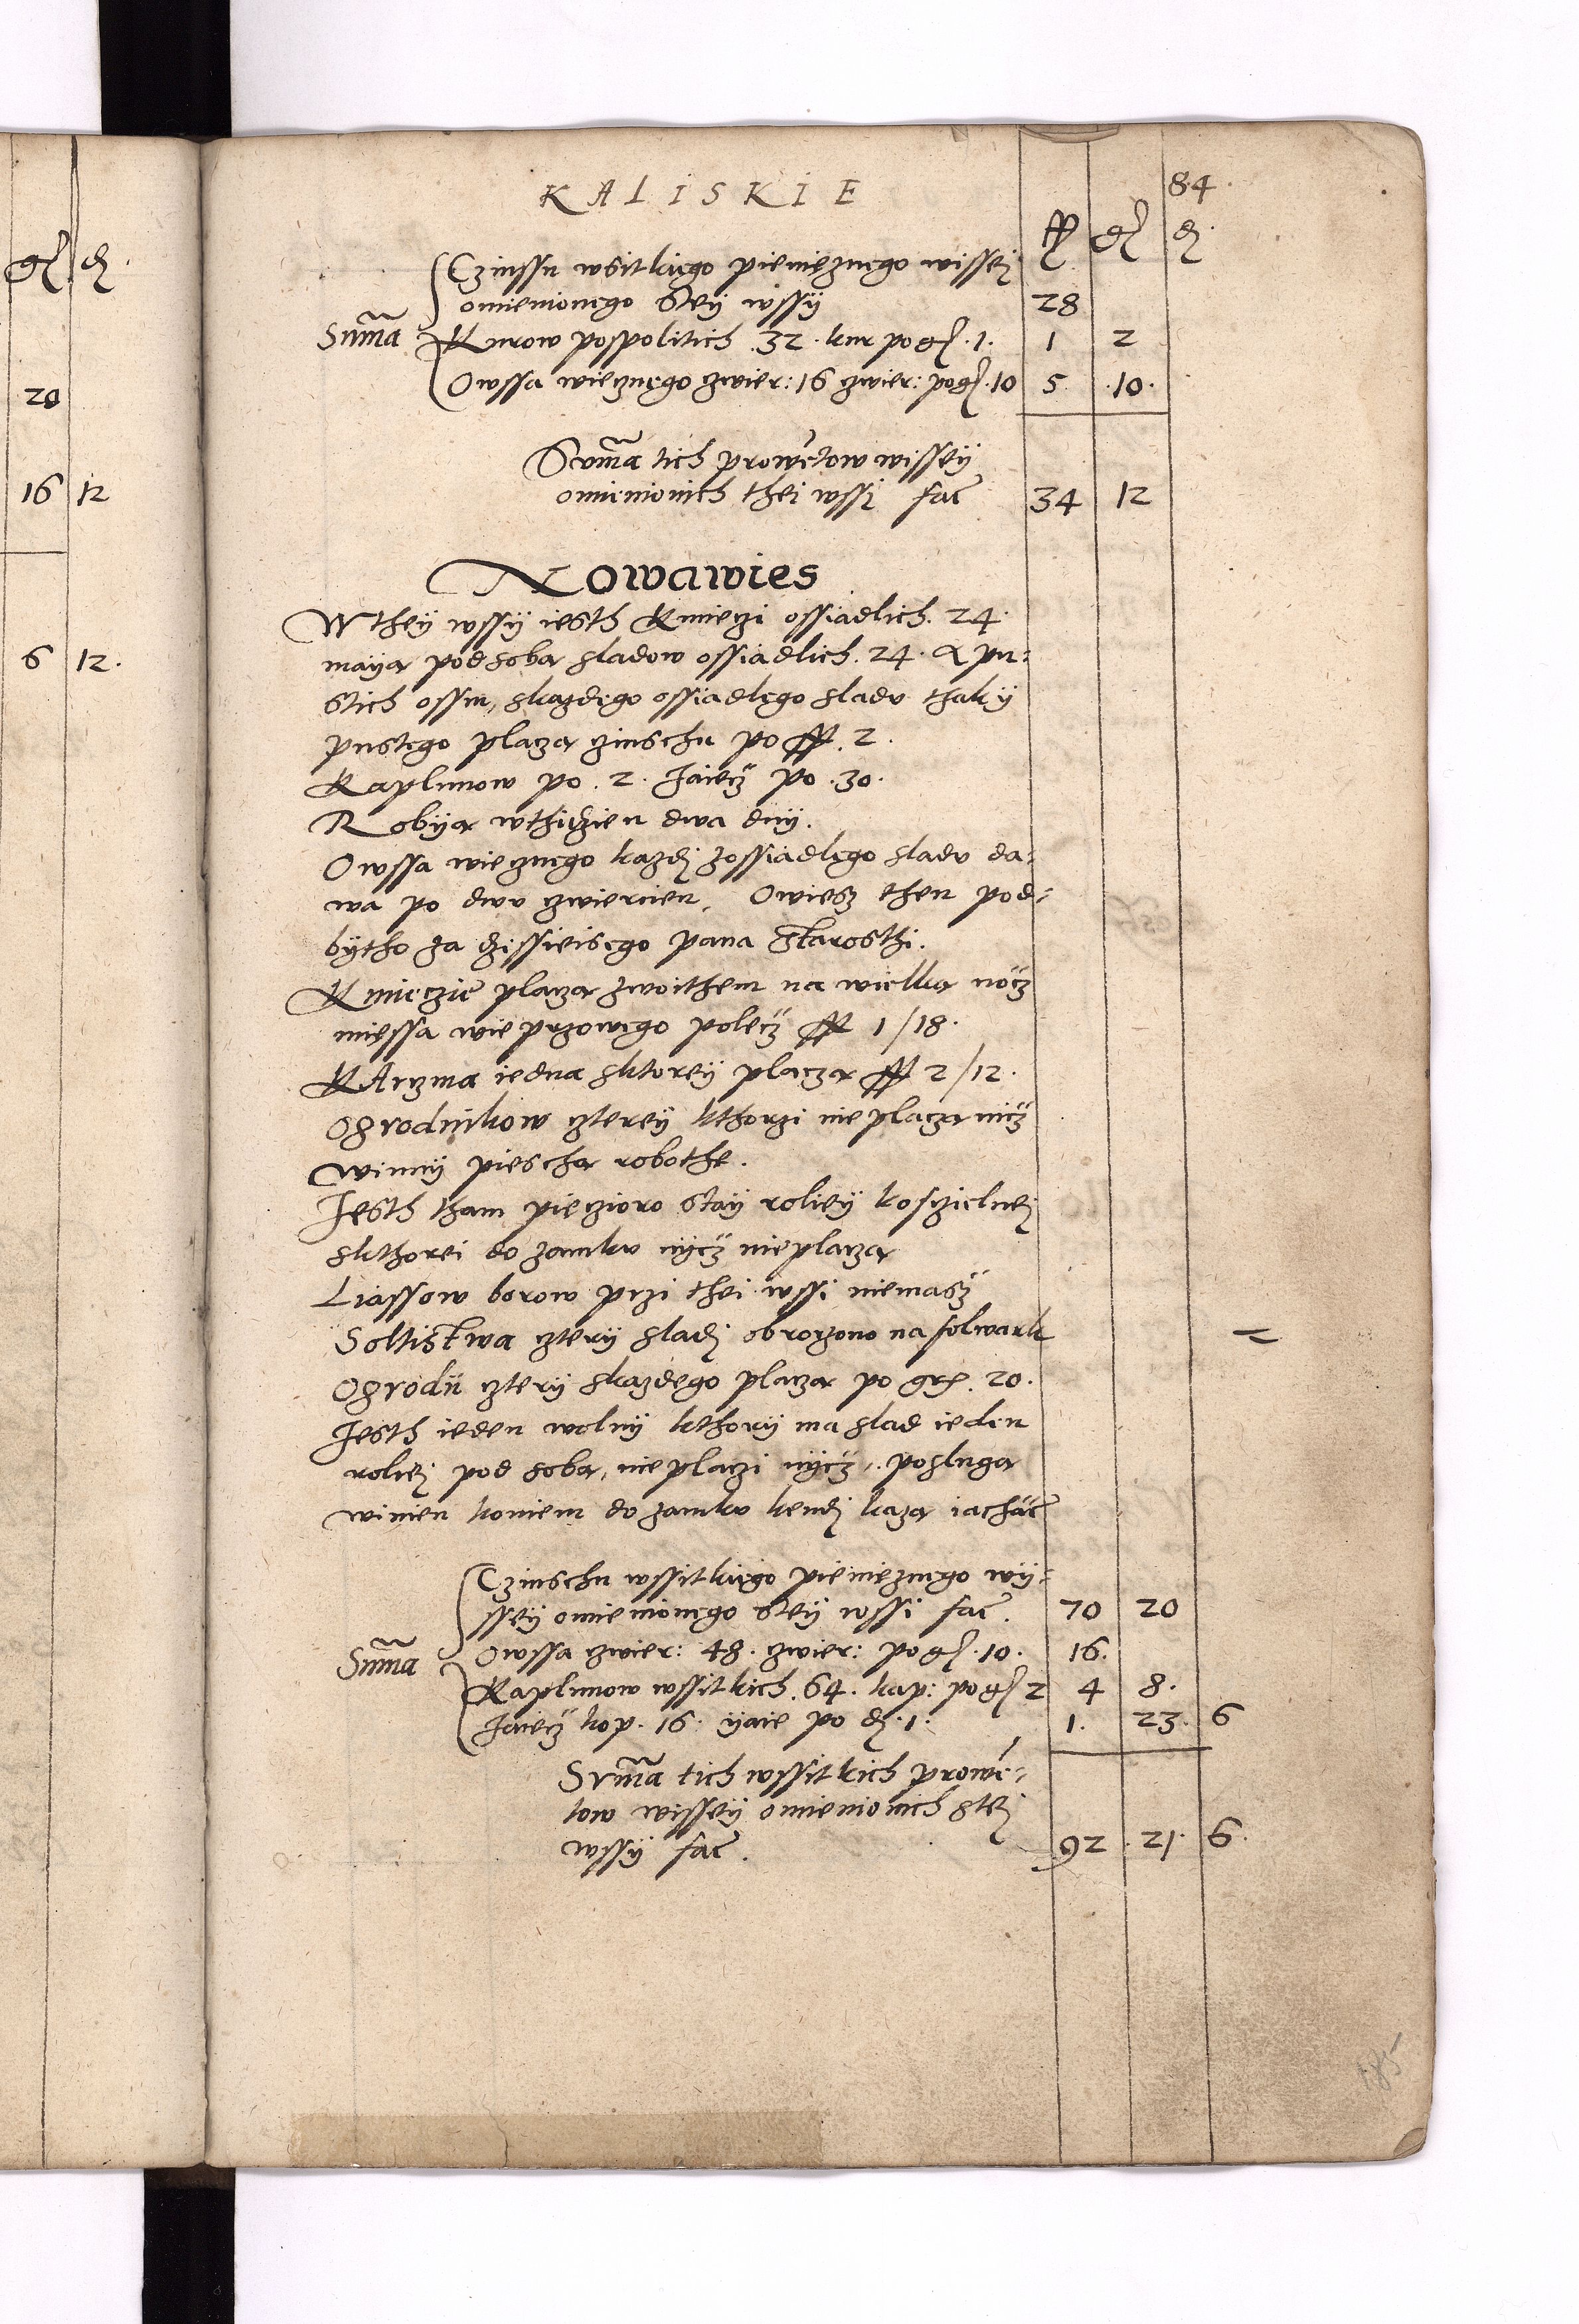 KALISKIE
84
ff gr d
Czinssu wsitkiego pienięznego wissei
omienionego stey wssÿ 28
Suma Kurow pospolitich 32. kur po gr. 1. 1 2
Owssa wiecznego zwier: 16 zwier: po gr. 10 5. 10.
Suma tich prowetow wissey
omienionich thei wssi fac 34 12
Nowawies
W they wssÿ iesth Kmieczi ossiadlich. 24
maÿa pod soba sladow ossiadlich. 24. A pu:
stich ossm, skazdego ossiadlego sladu thak ÿ
pustego placza czinschu po ff. 2.
Kaplunow po. 2. Jaiecz po. 30.
Robÿa wthidzien dwa dnÿ.
Owssa wiecznego kazdi zossiadlego sladu da:
wa po dwu zwiercien. Owiesz then pod-
bÿtho za dzissieisego pana Starosthi.
Kmieczie placza zwoithem na wielka nocz
miessa wieprzowego polecz ff 1/18.
KArczma iedna sktorey placza ff 2/12.
Ogrodnikow czterey kthorzi nieplacza nicz
winnÿ piescha robothe.
Jesth tham pieczioro stay roliey koscielnei
skthorei do zamku nÿcz nieplacza
Liassow borow przi thei wssi niemasz
Soltistwa czterÿ sladi obroczono na folwark
Ogrodu czterÿ skazdego placza po grs. 20.
Jesth ieden wolnÿ kthorÿ ma slad ieden
roliei pod soba, nie placzi nÿcz, posluga
winien koniem do zamku kendi kaza iachac
Czinschu wssitkiego pienięznego wÿ:
ssey omienionego stey wssi fac. 70 20
Suma Owssa zwier: 48. zwier: po gr. 10. 16.
Kaplunow wssitkich. 64. kap: po gr 2 4 8.
Jaiecz kop. 16. ÿaie po d. 1. 1. 23. 6
Suma tich wssitkich prowe-
tow wissey omienionich stei
wssÿ fac. 92 21. 6.
185
gr d.
20
16 12
6 12.